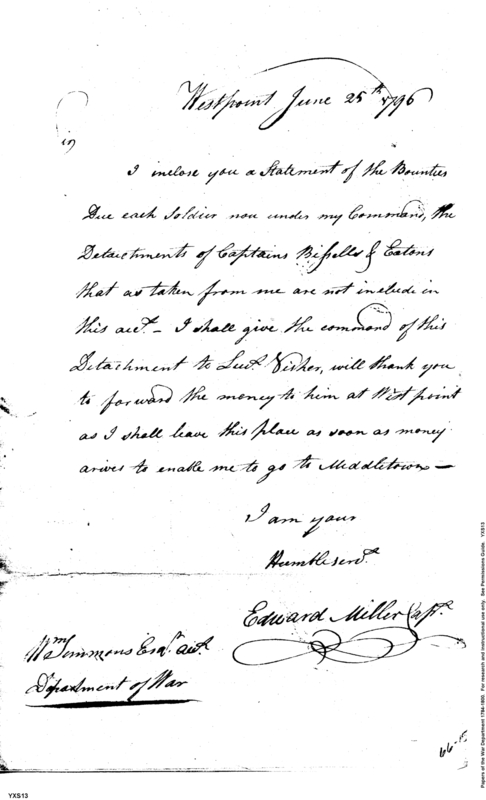 Westpoint June 25th 1796
I inclose you a Statement of the Bounties
Due each Soldier now under my Command, the
Detachments of Captains Bissells & Eatons
that as taken from me are not include in
this acct. – I shall give the command of this
Detachment to Lieut. Visher, will thank you
to forward the money to him at West point
as I shall leave this place as soon as money
arives to enable me to go to Middletown —
I am your
Humble servt.
Edward Miller Capt.
Wm Simmons Esqr. acct.
Department of War
66-15
YXS13
Papers of the War Department 1784-1800. For research and instructional use only. See Permissions Guide. YXS13